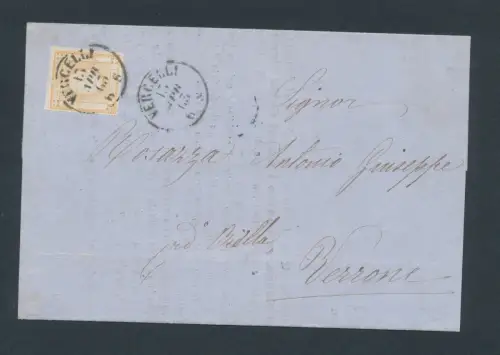 VERCELLI
15
APR
63
VERCELLI
15
APR
63
Signor
Rosazza Antonio Giuseppe
per Biella
Verrone